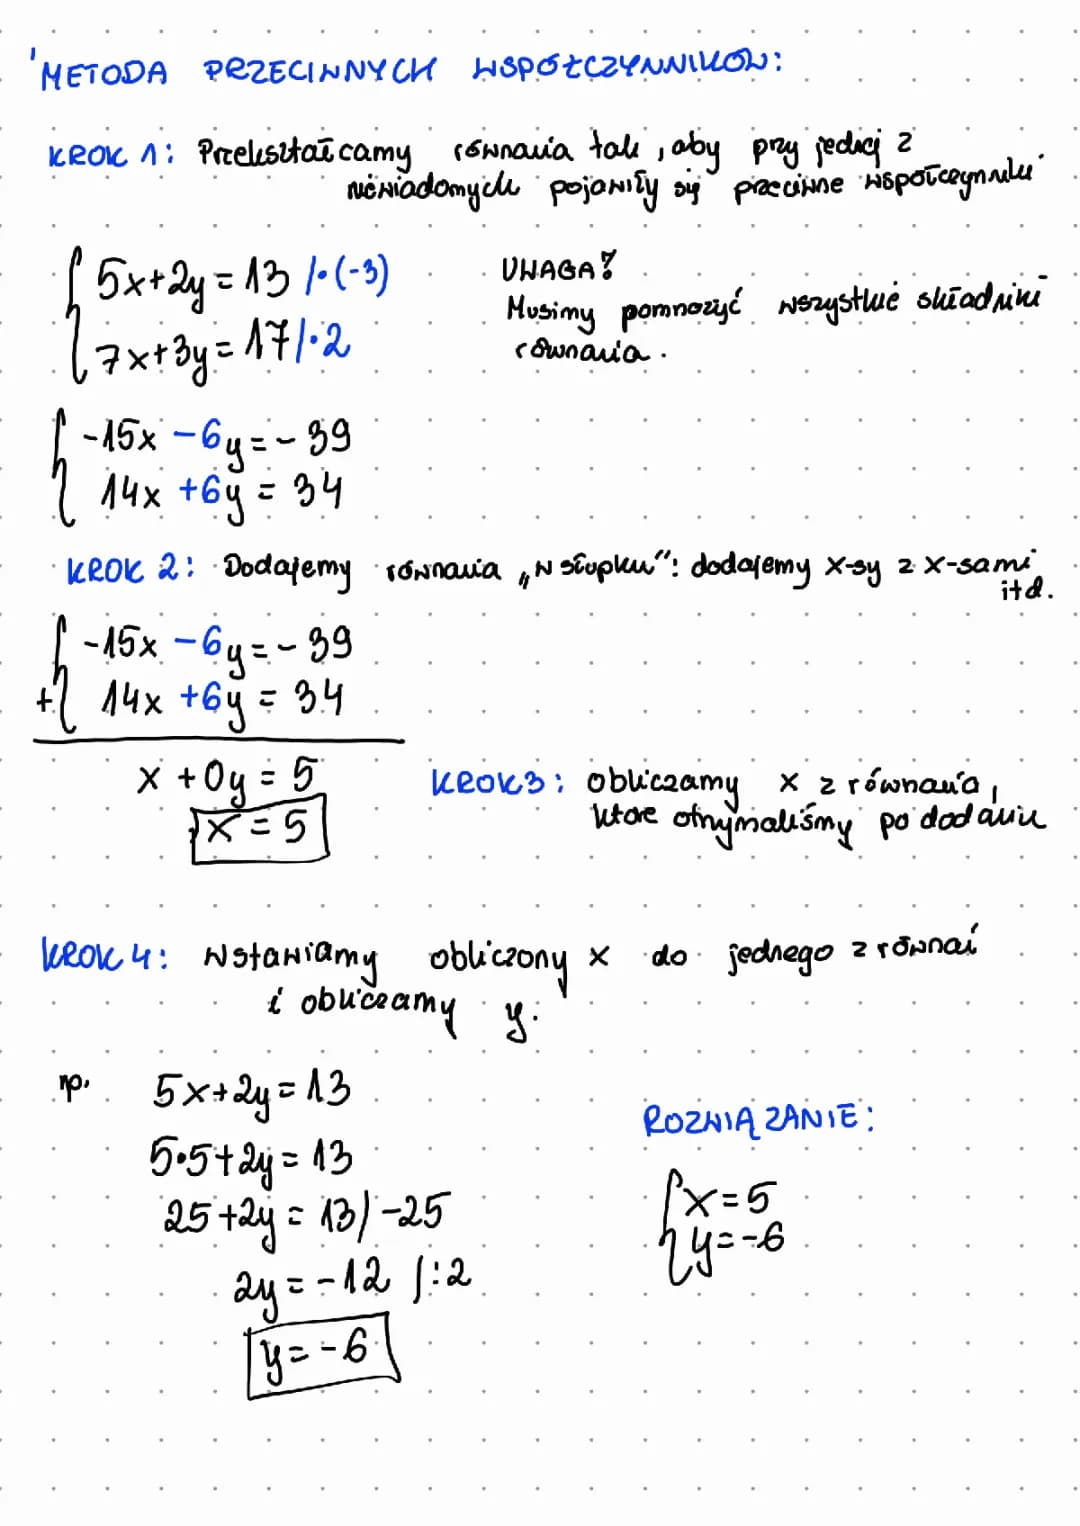 METODA PRZECIWNYCH WSPÓŁCZYNNIKÓW:
KROK 1: Przekształcamy równania tak, aby przy jednej z
niewiadomych pojawiły się przeciwne współczynniki
5x+2y=13 /·(-3)
UWAGA!
7x+3y=17/·2
Musimy pomnożyć wszystkie składniki
równania.
-15x -6y=-39
14x +6y=34
KROK 2: Dodajemy równania „w słupku": dodajemy x-sy z x-sami
itd.
-15x -6y=-39
+ 14x +6y=34
x +0y=5
x=5
KROK3: obliczamy x z równania,
które otrzymaliśmy po dodaniu
KROK 4: Wstawiamy obliczony x do jednego z równań
i obliczamy y.
np. 5x+2y=13
5·5+2y=13
25+2y=13/-25
2y=-12 /:2
y=-6
ROZWIĄZANIE:
x=5
y=-6